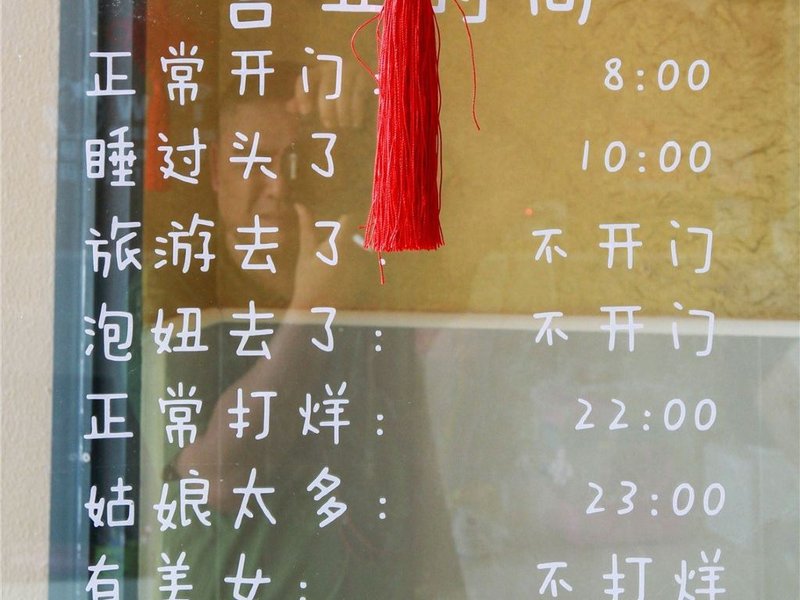 营业时间
正常开门: 8:00
睡过头了 10:00
旅游去了: 不开门
泡妞去了: 不开门
正常打烊: 22:00
姑娘太多: 23:00
有美女: 不打烊